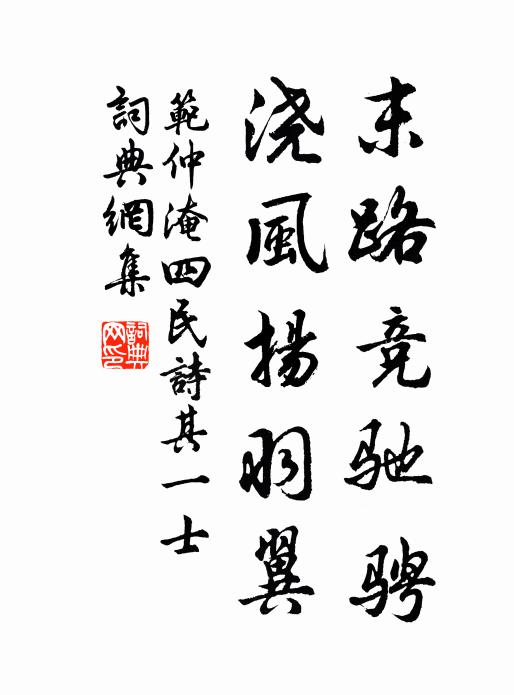 末路竞驰骋
浇風揚羽翼
範仲淹四民詩其一士
詞典網集
詞典网印